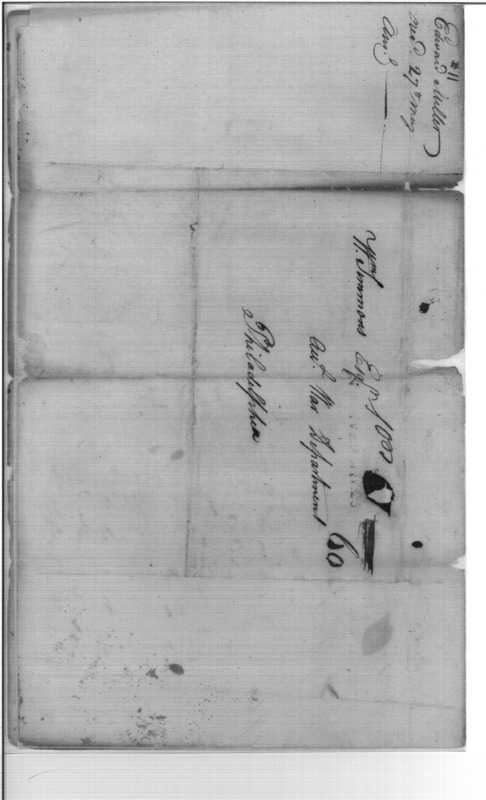 #11
Edward Miller
recd. 27th May
Ansd.
Wm. Simmons Esqr.
Act. War Department
Philadelphia
60